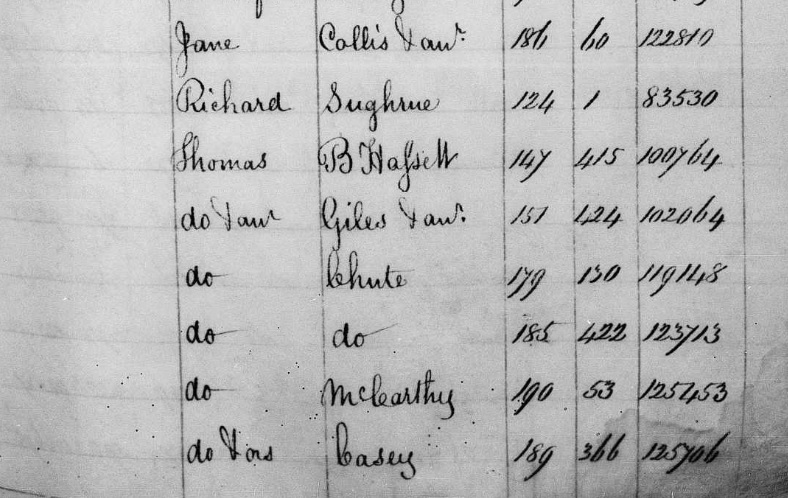 Jane Collis & anr. 186 60 122810
Richard Sughrue 124 1 83530
Thomas B Hassett 147 415 100764
do & anr Giles & anr. 151 424 102064
do Chute 179 130 119148
do do 185 422 123713
do McCarthy 190 53 125453
do & ors Casey 189 366 125706